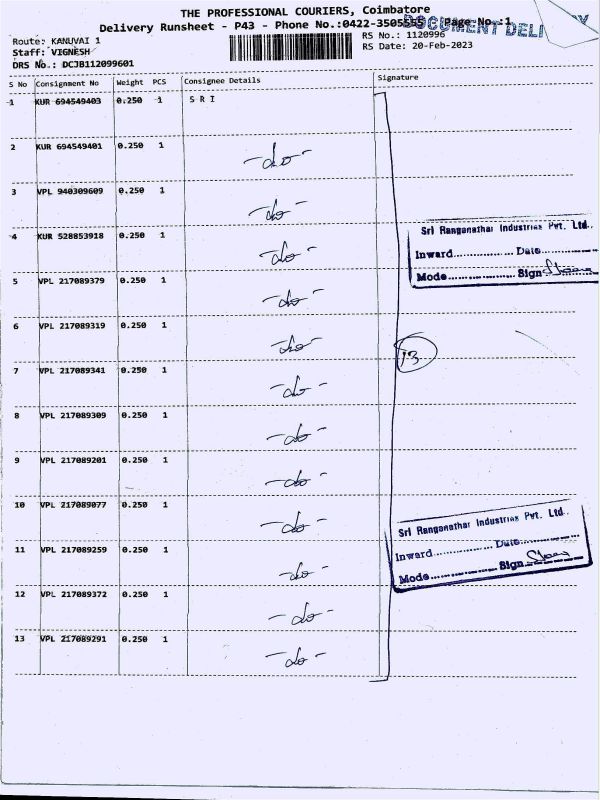 THE PROFESSIONAL COURIERS, Coimbatore
Delivery Runsheet - P43 - Phone No.:0422-3505555 Page No.:1
DOCUMENT DELI
Route: KANUVAI 1
RS No.: 1120996
Staff: VIGNESH
RS Date: 20-Feb-2023
DRS No.: DCJB112099601
S No Consignment No Weight PCS Consignee Details Signature
1 KUR 694549403 0.250 1 S R I
2 KUR 694549401 0.250 1 -do-
3 VPL 940309609 0.250 1 -do-
4 KUR 528853918 0.250 1 -do-
Sri Ranganathar Industries Pvt. Ltd.
Inward.................. Date..................
Mode.................. Sign
5 VPL 217089379 0.250 1 -do-
6 VPL 217089319 0.250 1 -do-
13
7 VPL 217089341 0.250 1 -do-
8 VPL 217089309 0.250 1 -do-
9 VPL 217089201 0.250 1 -do-
10 VPL 217089077 0.250 1 -do-
Sri Ranganathar Industries Pvt. Ltd.
Inward.................. Date..................
Mode.................. Sign
11 VPL 217089259 0.250 1 -do-
12 VPL 217089372 0.250 1 -do-
13 VPL 217089291 0.250 1 -do-